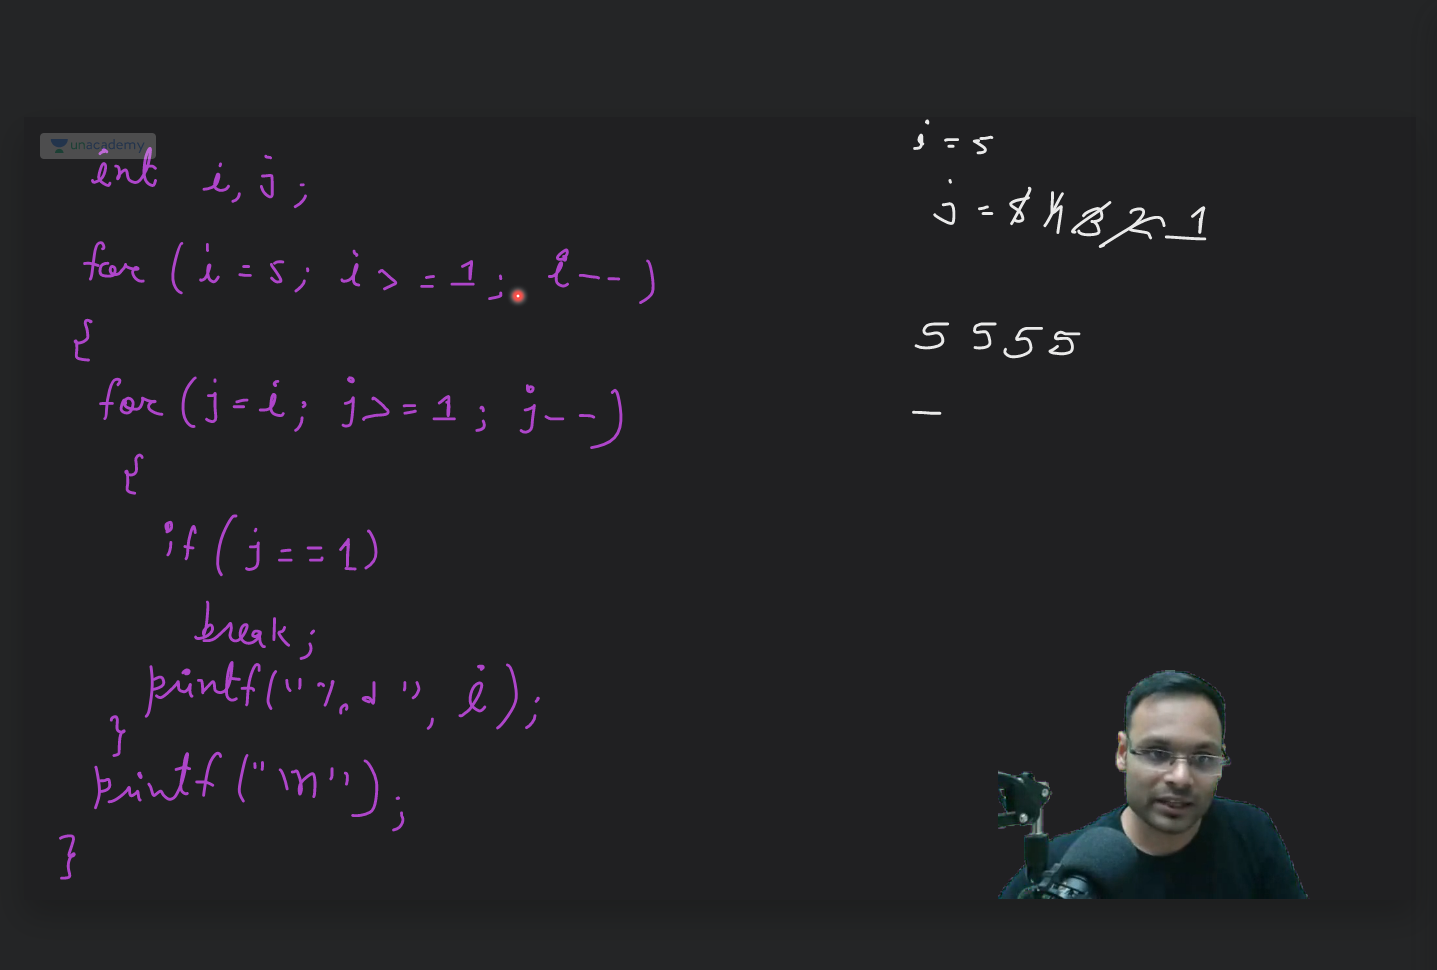 unacademy
int i, j;
for ( i = 5; i > = 1; i -- )
{
for ( j = i; j > = 1; j -- )
{
if ( j = = 1 )
break;
printf ( " % d ", i );
}
printf ( " \n " );
}
i = 5
j = 5 4 3 2 1
5 5 5 5